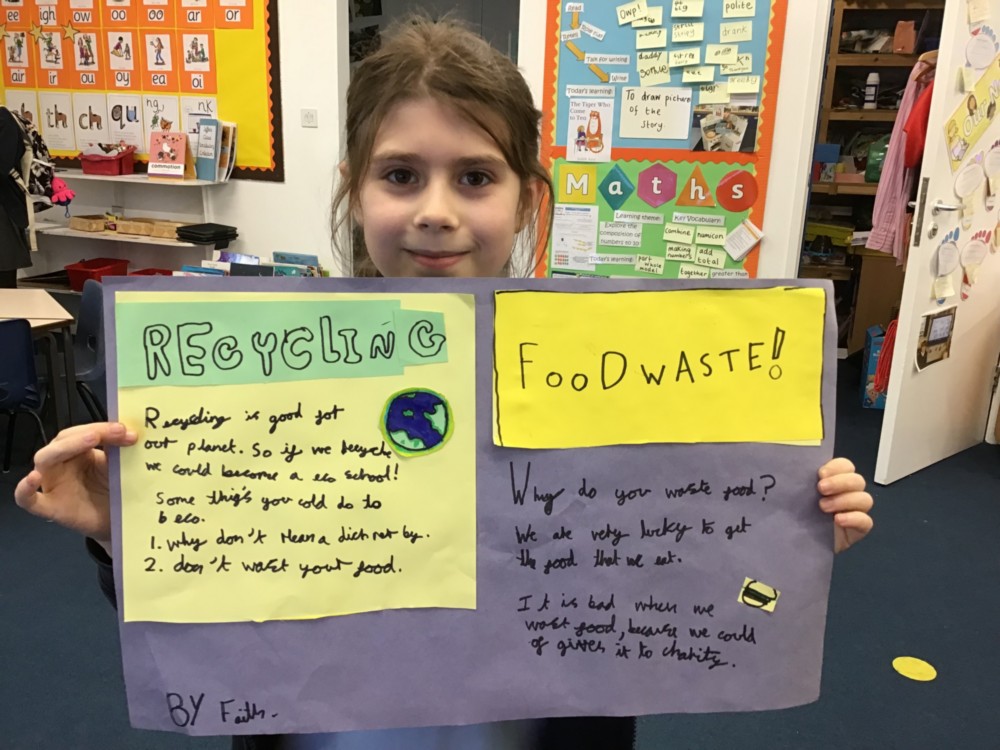 ee igh ow oo oo ar or
air ir ou oy ea oi
th ch qu ng nk
Owp!
polite
drank
Read
Write
Today's learning:
To draw picture
of the
story
The Tiger Who
Came to Tea
Maths
Learning theme:
Explore the
composition of
numbers to 10
Key Vocabulary:
combine numicon
making add
numbers total
part whole
model
together greater than
Today's learning:
RECYCLING
Recycling is good for
our planet. So if we recycle
we could become a eco school!
Some thigs you cold do to
b eco.
1. Why don't
2. don't wast your food.
BY Faith.
FooD wASTE!
Why do you waste food?
We are very lucky to get
the food that we eat.
It is bad when we
wast food, because we could
of given it to charity.